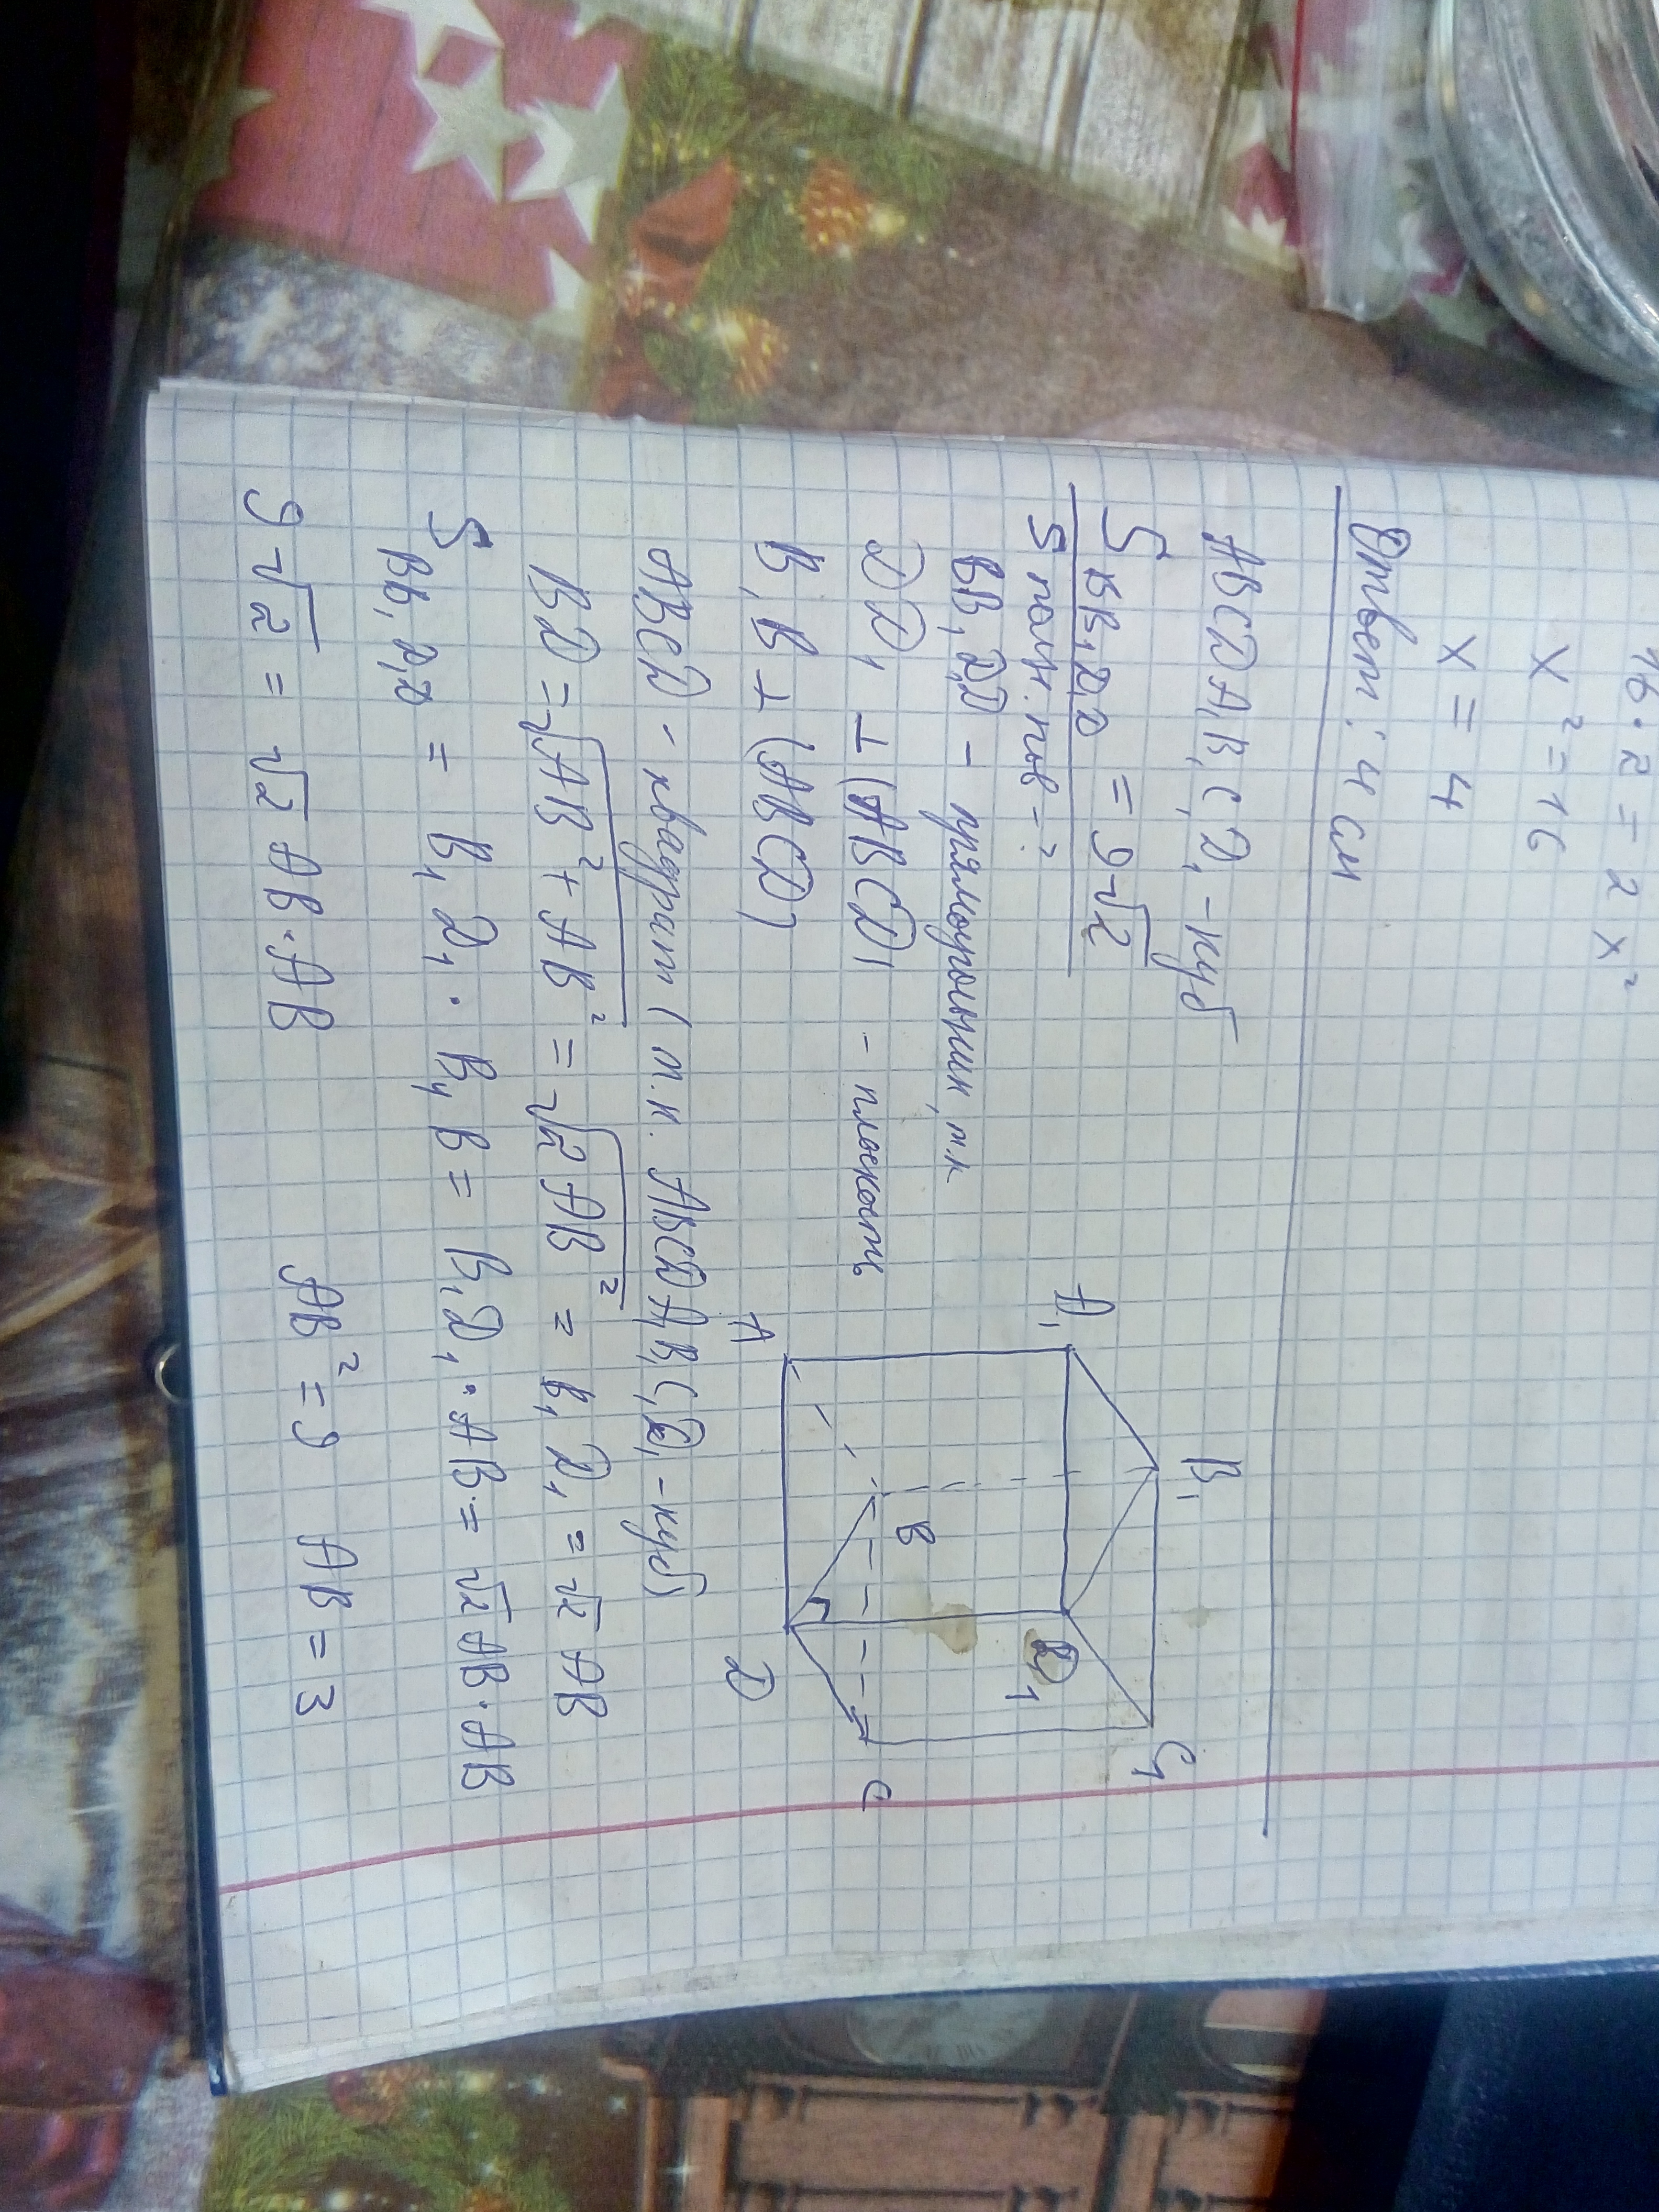 16 · 2 = 2x²
x² = 16
x = 4
Ответ: 4 см
ABCDA₁B₁C₁D₁ - куб
S BB₁D₁D = 9√2
S полн. пов - ?
BB₁D₁D - прямоугольник, т.к
DD₁ ⊥ (ABCD) - плоскость
B₁B ⊥ (ABCD)
ABCD - квадрат (т.к. ABCDA₁B₁C₁D₁ - куб)
BD = √AB² + AB² = √2AB² = B₁D₁ = √2 AB
S BB₁D₁D = B₁D₁ · B₁B = B₁D₁ · AB = √2 AB · AB
9√2 = √2 AB · AB AB² = 9 AB = 3
B₁
C₁
A₁
D₁
B
C
A
D